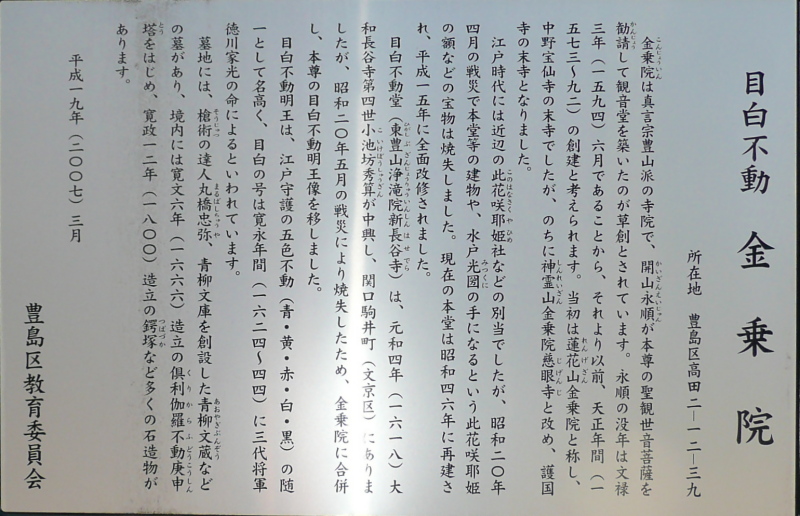 目白不動 金乗院
所在地 豊島区高田二―一二―三九
金乗院は真言宗豊山派の寺院で、開山永順が本尊の聖観世音菩薩を
勧請して観音堂を築いたのが草創とされています。永順の没年は文禄
三年(一五九四)六月であることから、それより以前、天正年間(一
五七三〜九二)の創建と考えられます。当初は蓮花山金乗院と称し、
中野宝仙寺の末寺でしたが、のちに神霊山金乗院慈眼寺と改め、護国
寺の末寺となりました。
江戸時代には近辺の此花咲耶姫社などの別当でしたが、昭和二〇年
四月の戦災で本堂等の建物や、水戸光圀の手になるという此花咲耶姫
の額などの宝物は焼失しました。現在の本堂は昭和四六年に再建さ
れ、平成一五年に全面改修されました。
目白不動堂(東豊山浄滝院新長谷寺)は、元和四年(一六一八)大
和長谷寺第四世小池坊秀算が中興し、関口駒井町(文京区)にありま
したが、昭和二〇年五月の戦災により焼失したため、金乗院に合併
し、本尊の目白不動明王像を移しました。
目白不動明王は、江戸守護の五色不動(青・黄・赤・白・黒)の随
一として名高く、目白の号は寛永年間(一六二四〜四四)に三代将軍
徳川家光の命によるといわれています。
墓地には、槍術の達人丸橋忠弥、青柳文庫を創設した青柳文蔵など
の墓があり、境内には寛文六年(一六六六)造立の倶利伽羅不動庚申
塔をはじめ、寛政一二年(一八〇〇)造立の鍔塚など多くの石造物が
あります。
平成一九年(二〇〇七)三月
豊島区教育委員会